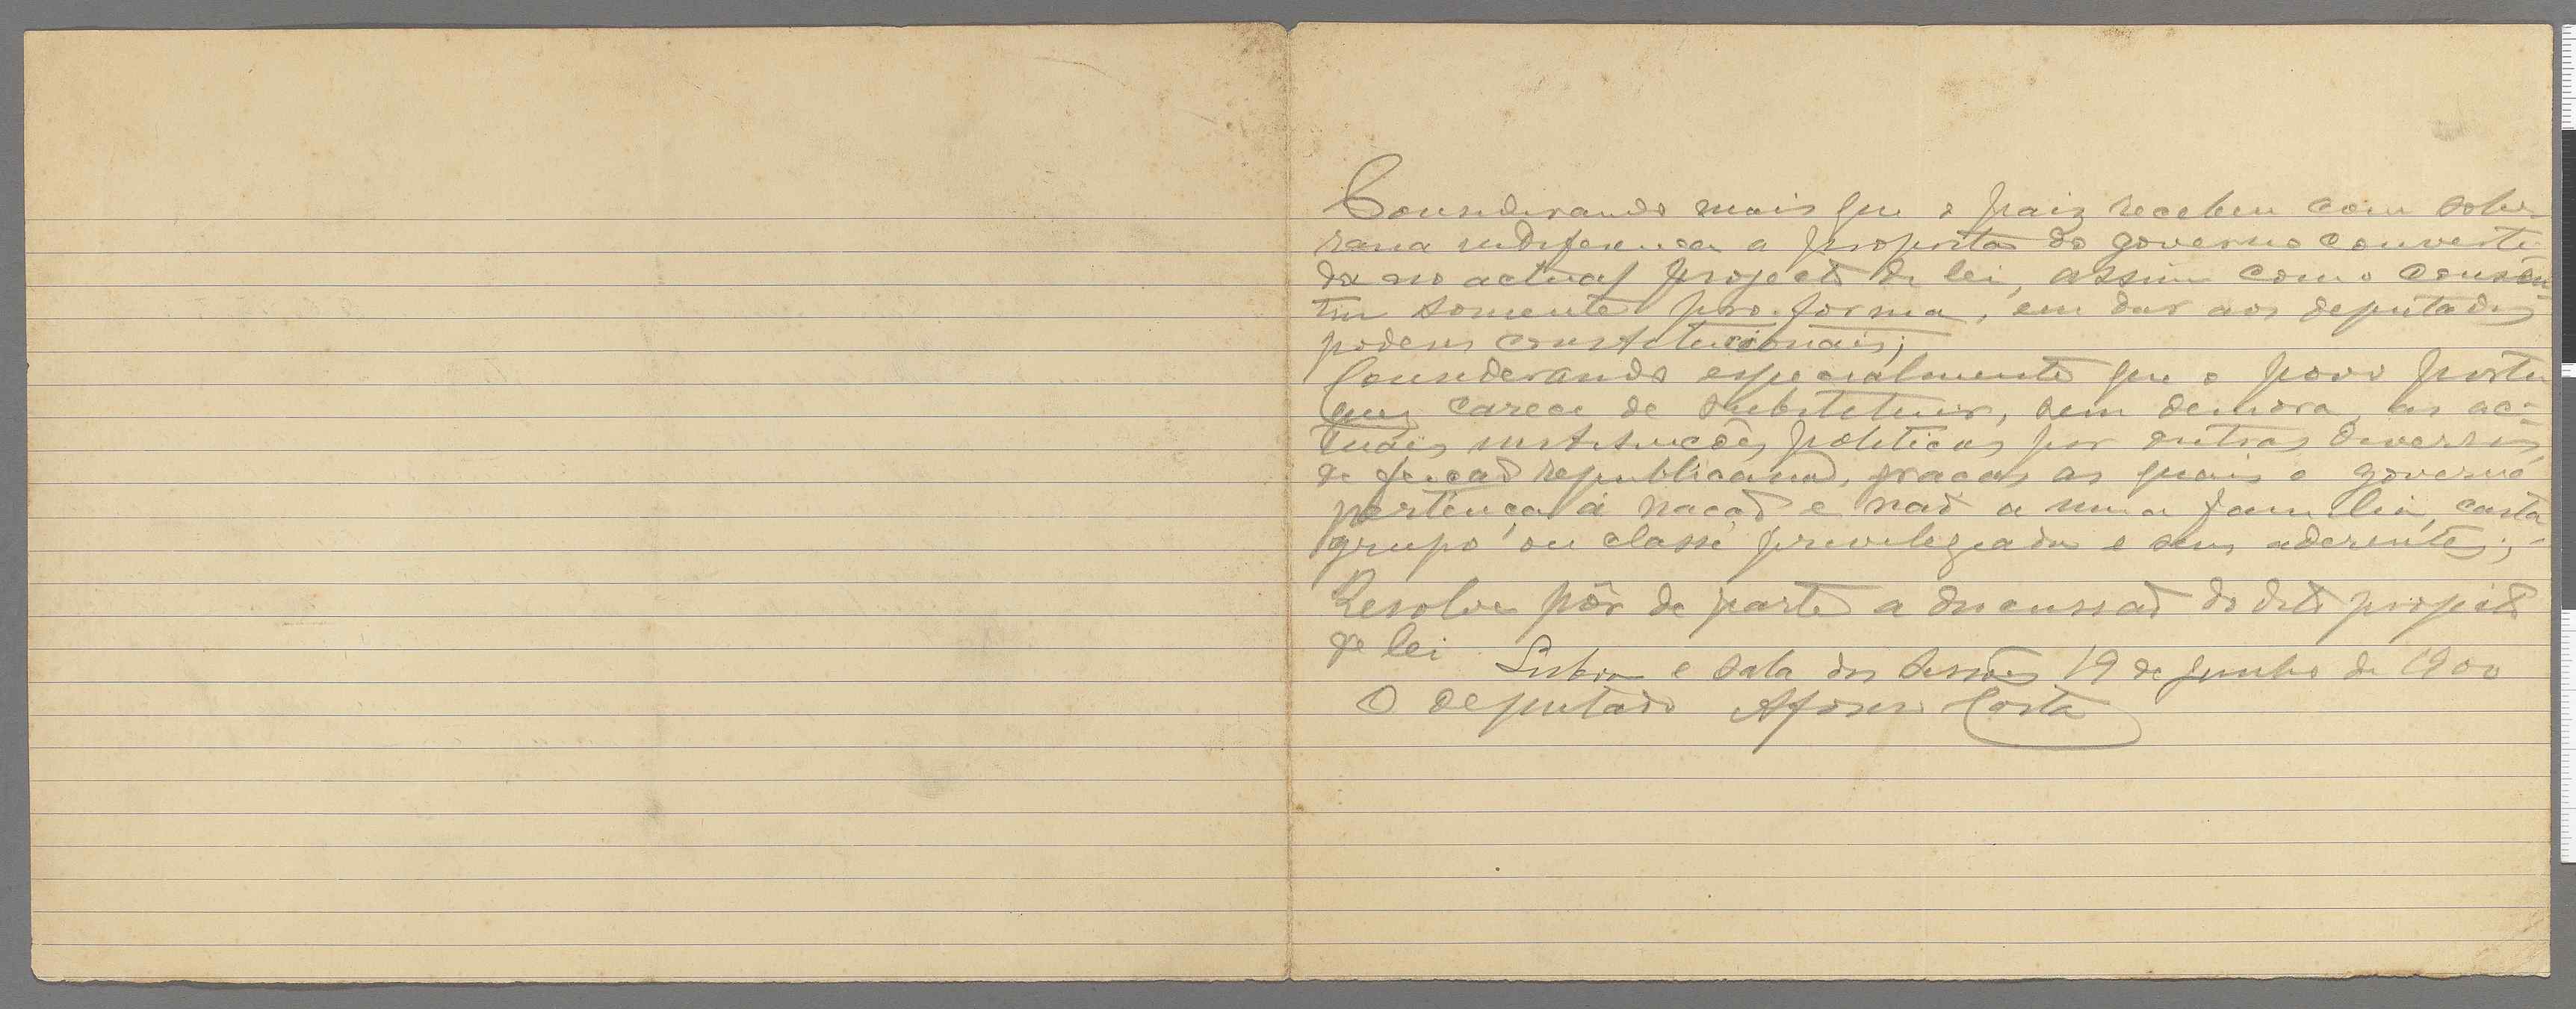 Considerando mais que o paiz recebeu com sobe-
rana indiferença a proposta do governo converti-
da no actual projecto de lei, assim como consen-
tiu somente pro-forma, em dar aos deputados
poderes constitucionais;
Considerando especialmente que o povo portu-
guez carece de substituir, sem demora, as ac-
tuais instituições politicas por outras diversas,
de feição republicana, graças ás quais o governo
pertença á nação e não a uma familia, casta
grupo ou classe privilegiada e seus aderentes; -
Resolve pôr de parte a discussão do dito projecto
de lei
Lisboa e sala das sessões 19 de junho de 1900
O deputado Afonso Costa